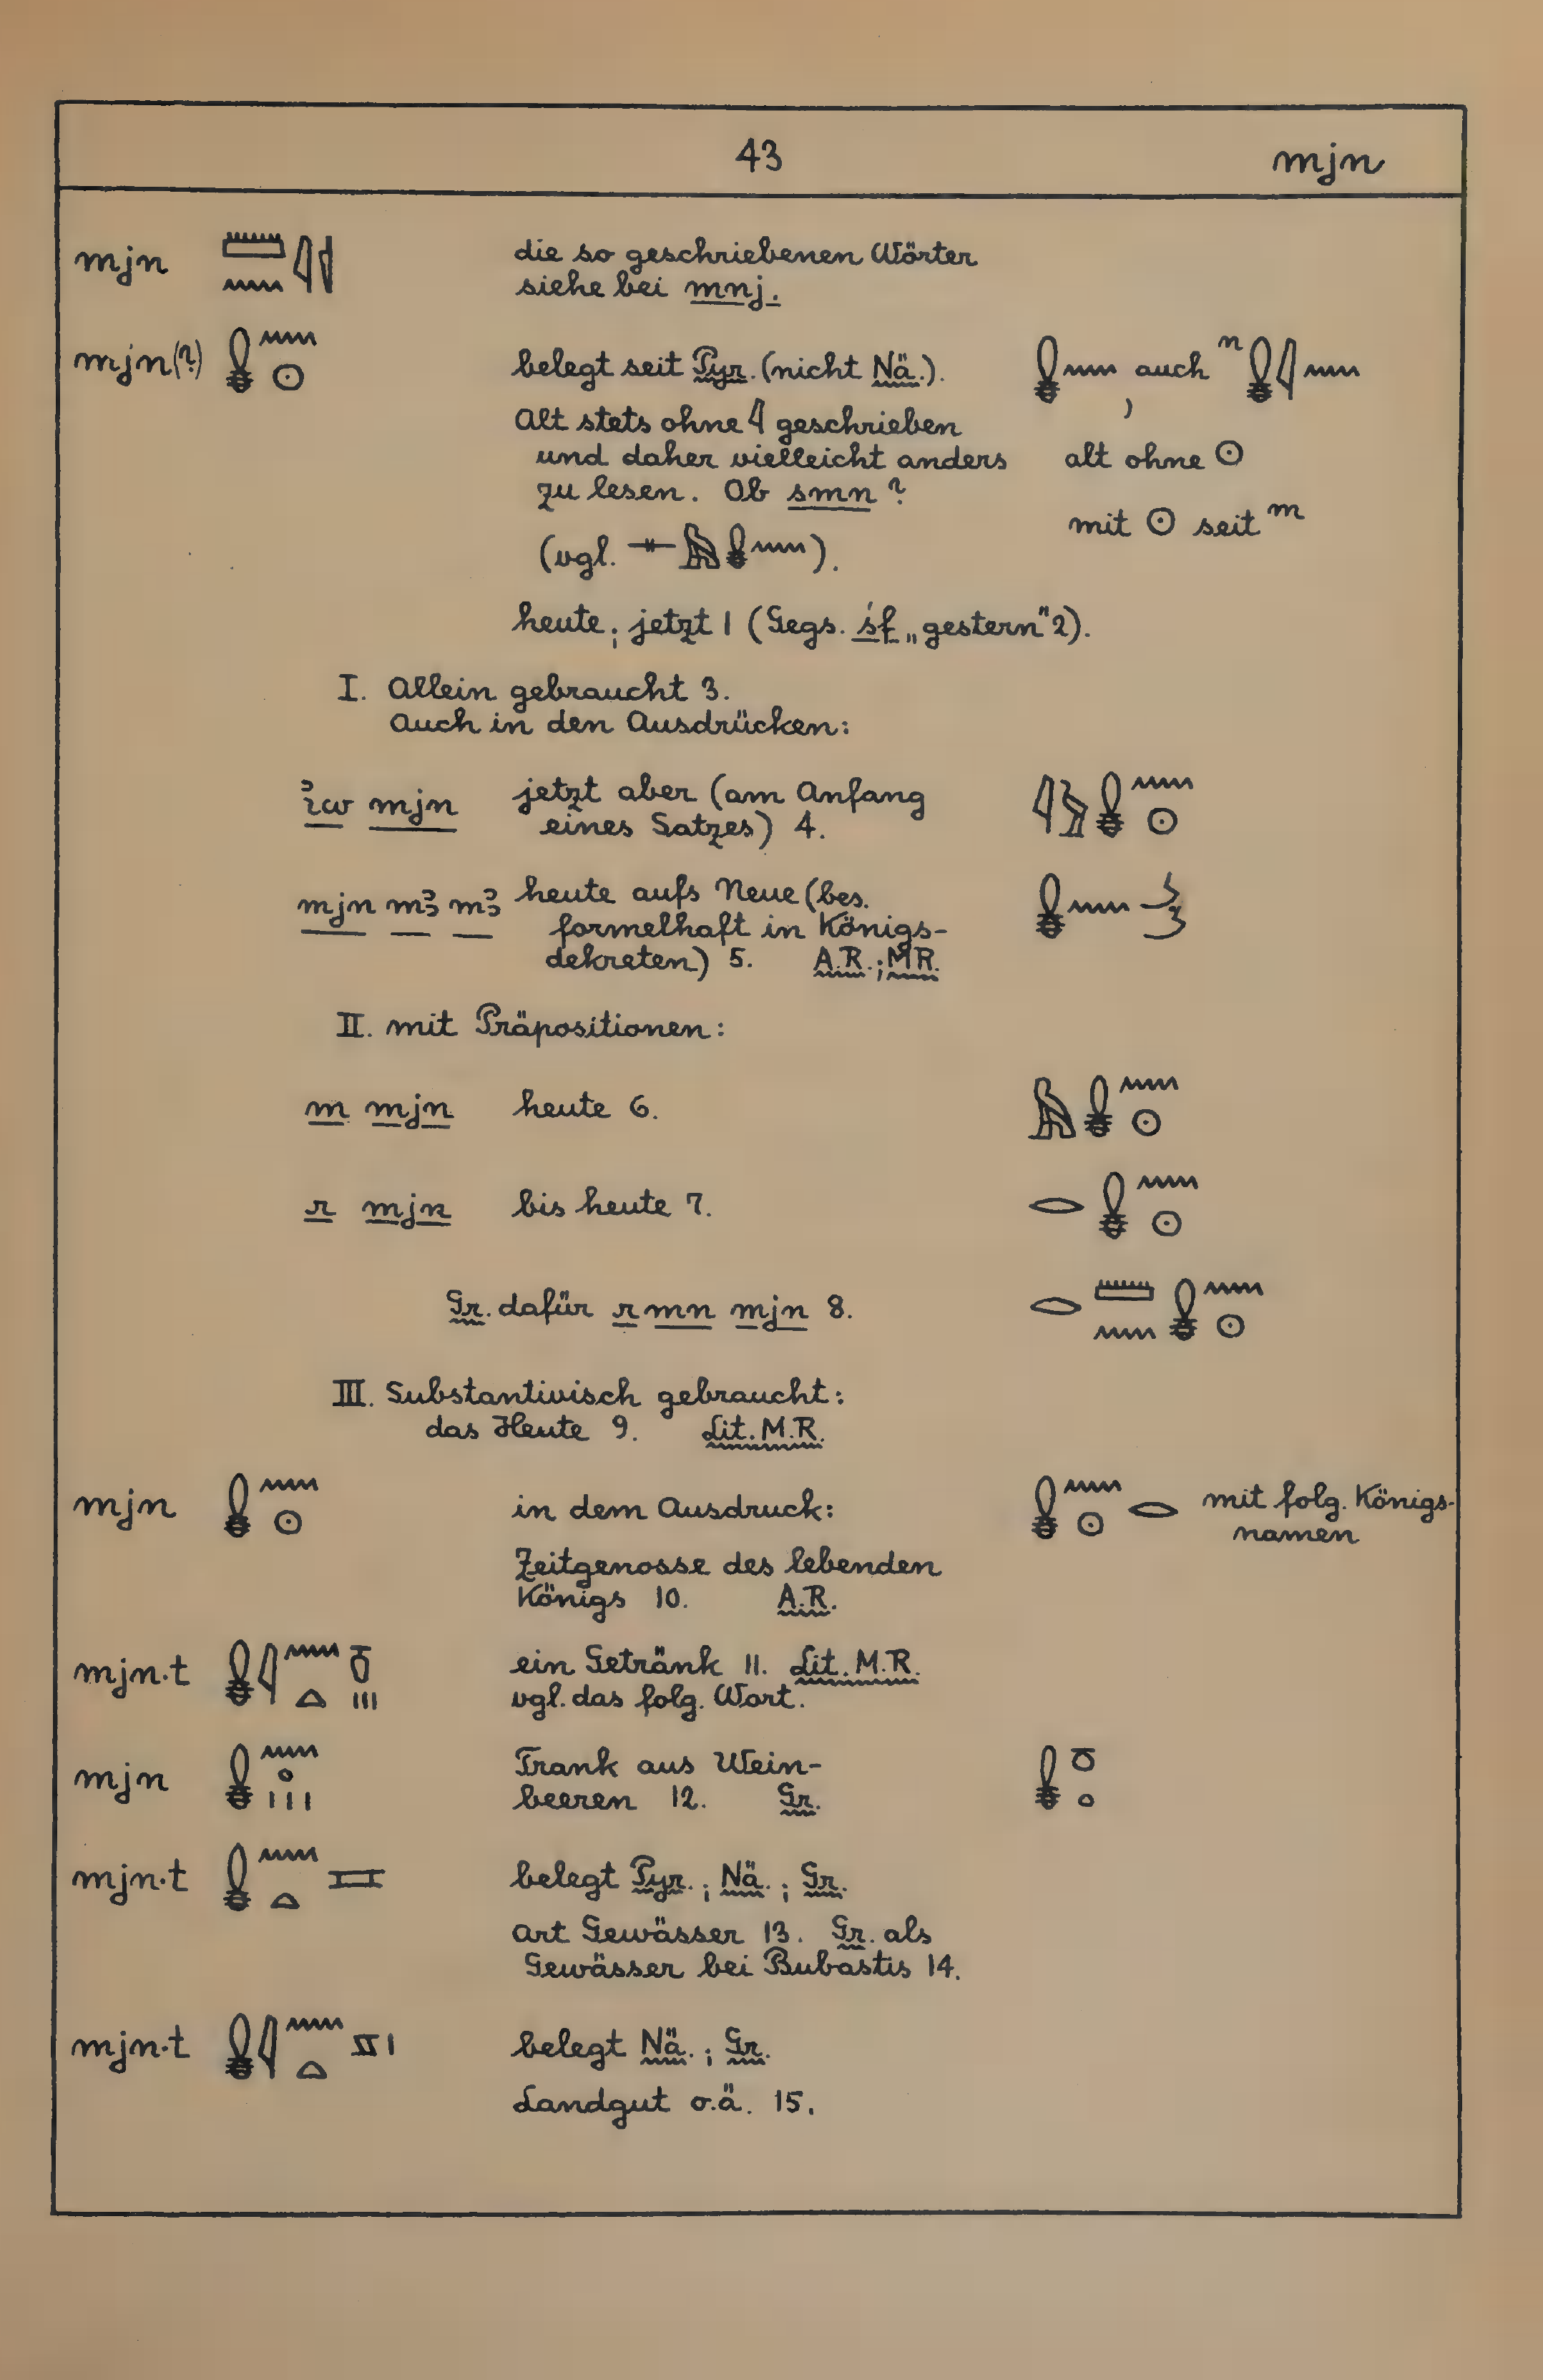 43 mjn
mjn 𓏠𓈖𓇋𓀀 die so geschriebenen Wörter
siehe bei mnj.
mjn(?) 𓏇𓈖𓇳 belegt seit Pyr. (nicht Nä.). 𓏇𓈖, auch n 𓏇𓇋𓈖
Alt stets ohne 𓇋 geschrieben
und daher vielleicht anders alt ohne 𓇳
zu lesen. Ob smn?
mit 𓇳 seit m
(vgl. 𓊃𓅓𓏇𓈖).
heute; jetzt 1 (Gegs. śf „gestern" 2).
I. Allein gebraucht 3.
Auch in den Ausdrücken:
ꞽw mjn jetzt aber (am Anfang 𓇋𓅱𓏇𓈖𓇳
eines Satzes) 4.
mjn mꜣ mꜣ heute aufs Neue (bes. 𓏇𓈖
formelhaft in Königs-
dekreten) 5. A.R.; M.R.
II. mit Präpositionen:
m mjn heute 6. 𓅓𓏇𓈖𓇳
r mjn bis heute 7. 𓂋𓏇𓈖𓇳
Gr. dafür r mn mjn 8. 𓂋𓏠𓈖𓏇𓈖𓇳
III. Substantivisch gebraucht:
das Heute 9. Lit. M.R.
mjn 𓏇𓈖𓇳 in dem Ausdruck: 𓏇𓈖𓇳𓂋 mit folg. Königs-
namen
Zeitgenosse des lebenden
Königs 10. A.R.
mjn·t 𓏇𓇋𓈖𓏏𓏊𓏥 ein Getränk 11. Lit. M.R.
vgl. das folg. Wort.
mjn 𓏇𓈖𓈒𓏥 Trank aus Wein- 𓏇𓏌𓈒
beeren 12. Gr.
mjn·t 𓏇𓈖𓏏𓈘 belegt Pyr.; Nä.; Gr.
Art Gewässer 13. Gr. als
Gewässer bei Bubastis 14.
mjn·t 𓏇𓇋𓈖𓏏𓈅𓏤 belegt Nä.; Gr.
Landgut o.ä. 15.